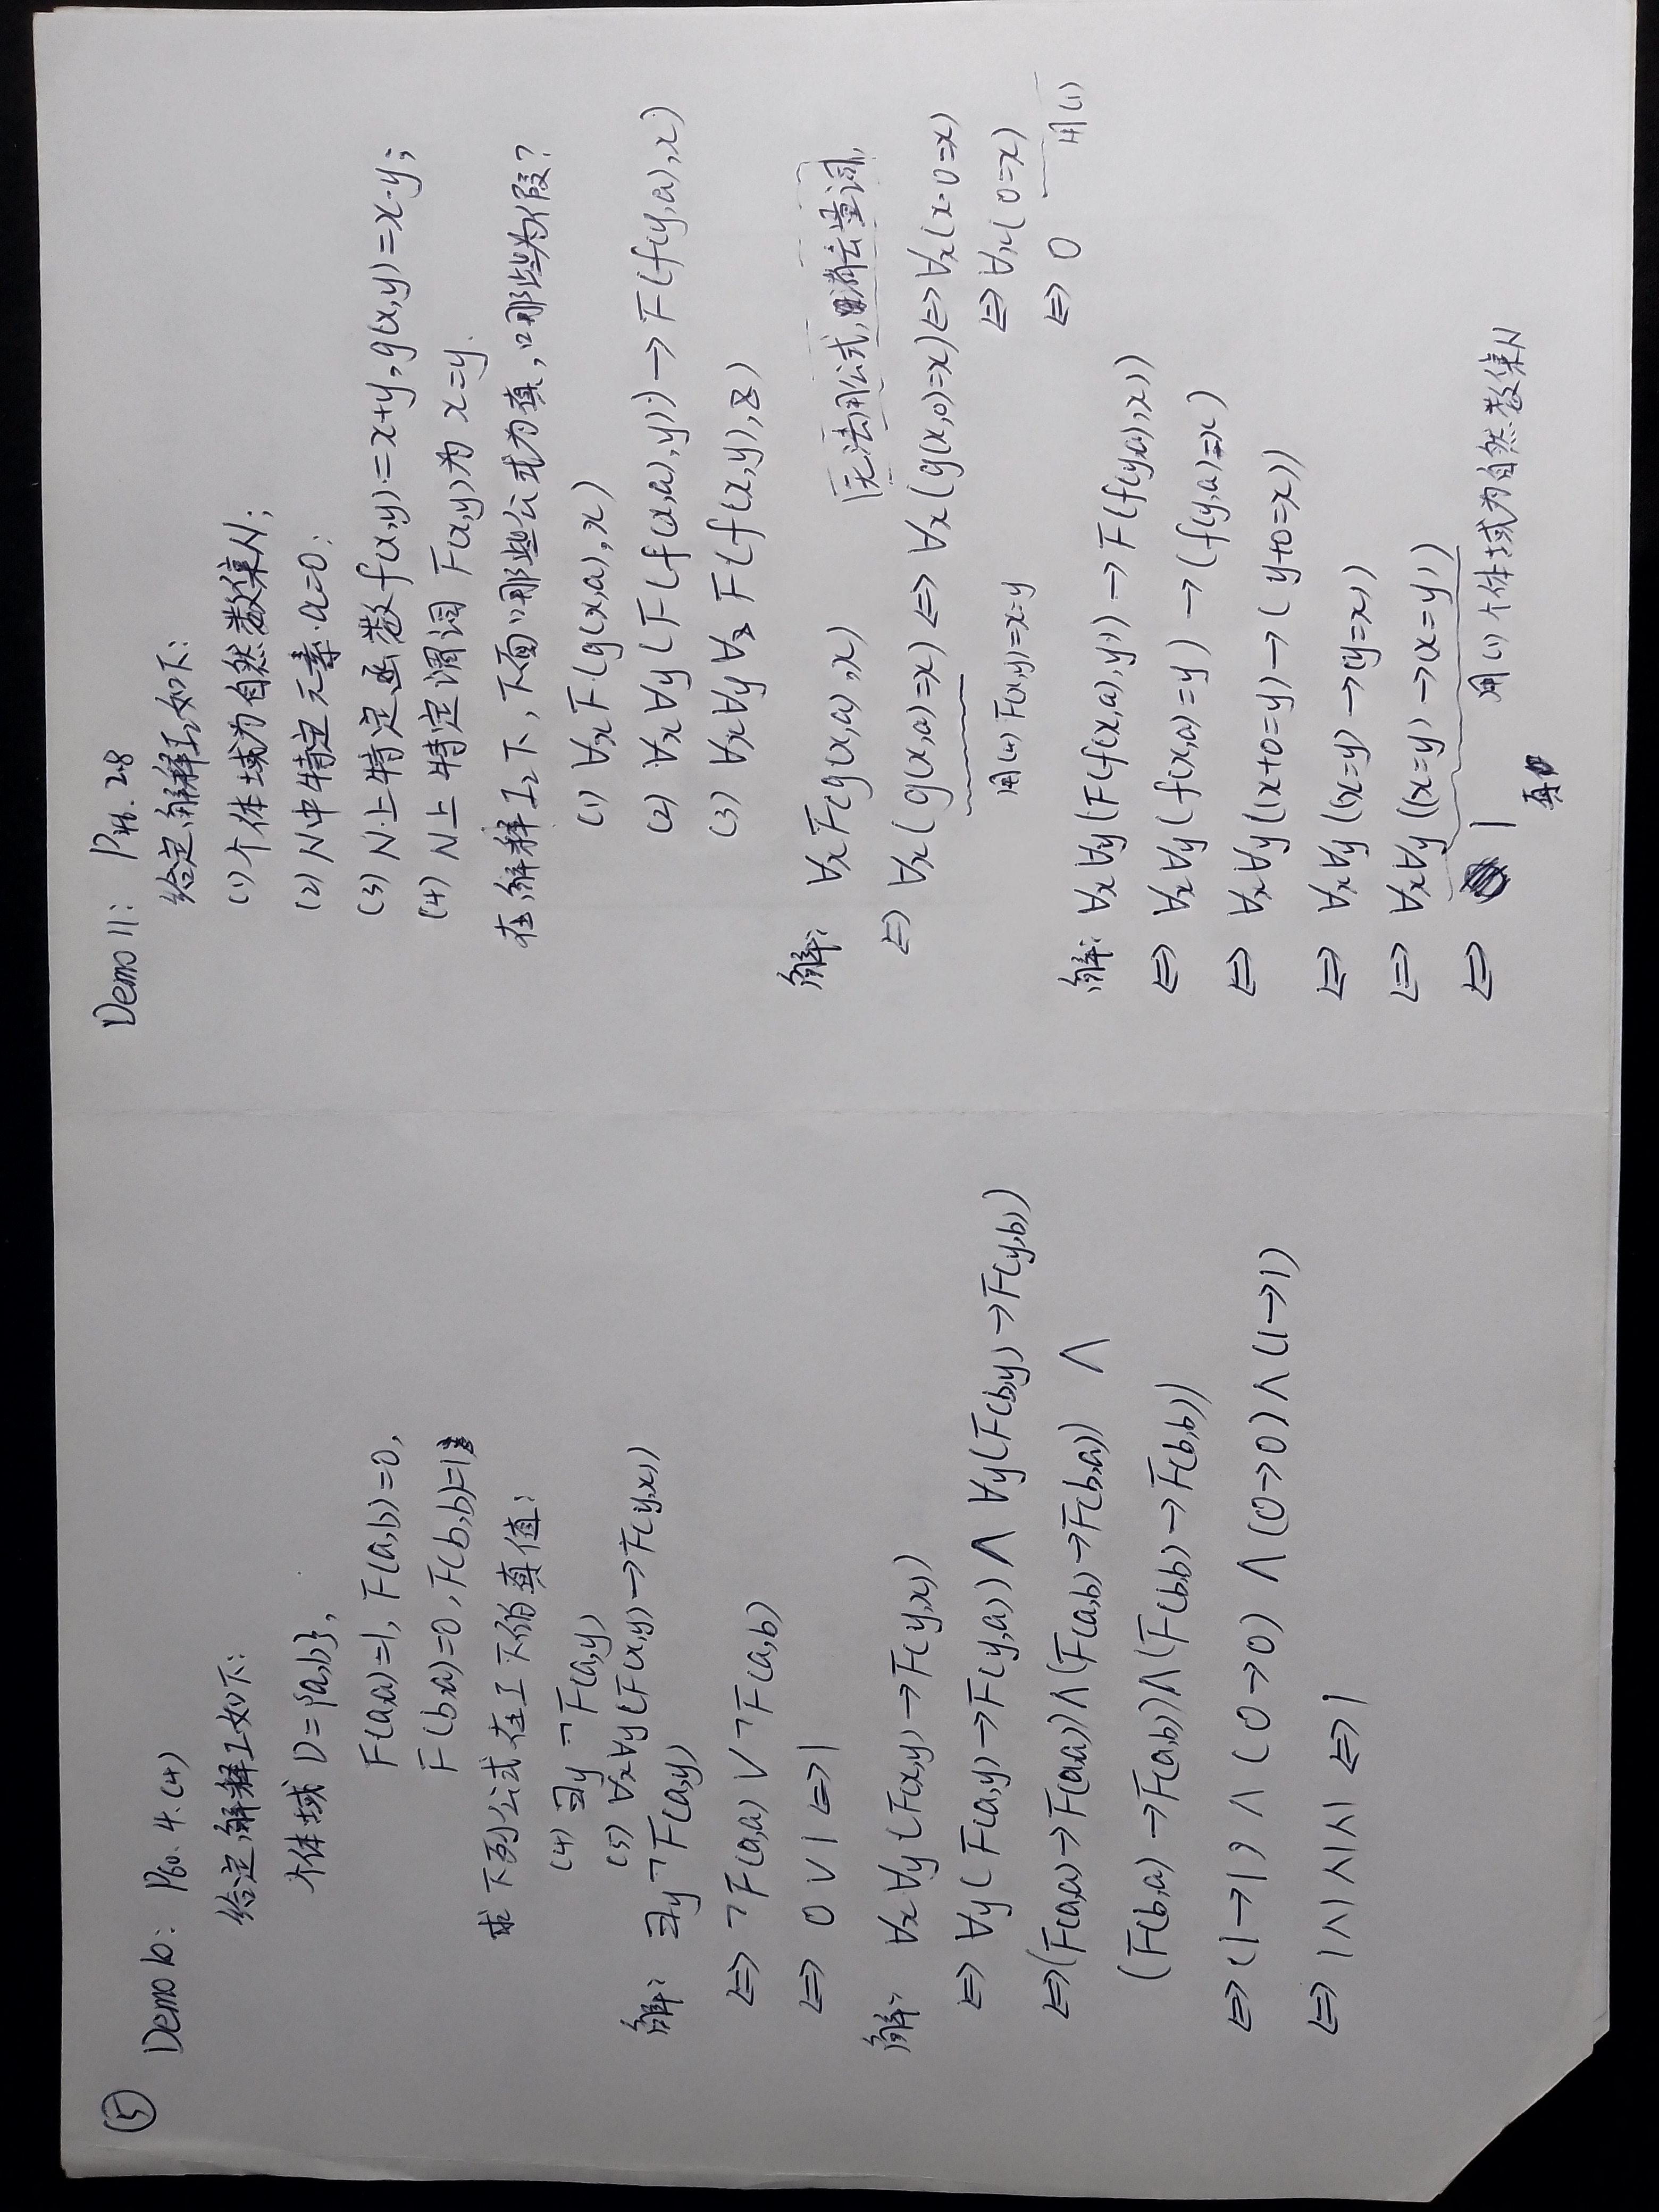 ⑤
Demo 10: P60. 4. (4)
给定解释I如下:
个体域 D={a,b},
F(a,a)=1, F(a,b)=0,
F(b,a)=0, F(b,b)=1
求下列公式在I下的真值:
(4) ∃y ¬F(a,y)
(5) ∀x∀y(F(x,y)→F(y,x))
解: ∃y ¬F(a,y)
⇔ ¬F(a,a) ∨ ¬F(a,b)
⇔ 0∨1 ⇔ 1
解: ∀x∀y(F(x,y)→F(y,x))
⇔ ∀y(F(a,y)→F(y,a)) ∧ ∀y(F(b,y)→F(y,b))
⇔ (F(a,a)→F(a,a))∧(F(a,b)→F(b,a)) ∧
(F(b,a)→F(a,b))∧(F(b,b)→F(b,b))
⇔ (1→1) ∧ (0→0) ∧ (0→0) ∧ (1→1)
⇔ 1∧1∧1∧1 ⇔ 1
Demo 11: P46. 2.8
给定解释I₂如下:
(1) 个体域为自然数集N;
(2) N中特定元素 a=0;
(3) N上特定函数 f(x,y)=x+y, g(x,y)=x·y;
(4) N上特定谓词 F(x,y)为 x=y.
在解释I₂下,下面哪些公式为真,哪些为假?
(1) ∀xF(g(x,a),x)
(2) ∀x∀y(F(f(x,a),y))→F(f(y,a),x)
(3) ∀x∀y∀z F(f(x,y),z)
解: ∀xF(g(x,a),x) 无法用公式,消去量词,
⇔ ∀x(g(x,a)=x) ⇔ ∀x(g(x,0)=x) ⇔ ∀x(x·0=x)
用(4) F(x,y)=x=y ⇔ ∀x(0=x)
⇔ 0 用(1)
解: ∀x∀y(F(f(x,a),y))→F(f(y,a),x))
⇔ ∀x∀y(f(x,a)=y)→(f(y,a)=x)
⇔ ∀x∀y((x+0=y)→(y+0=x))
⇔ ∀x∀y((x=y)→(y=x))
⇔ ∀x∀y((x=y)→(x=y))
⇔ 1 用(1)个体域为自然数集N
真